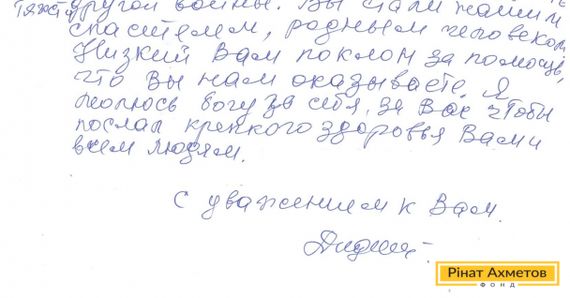 другой войны. Вы стали нашим
спасителем, родным человеком
Низкий Вам поклон за помощь,
что Вы нам оказываете. Я
молюсь богу за себя, за Вас чтобы
послал крепкого здоровья Вам и
всем людям.
С уважением к Вам.
Рінат Ахметов
ФОНД